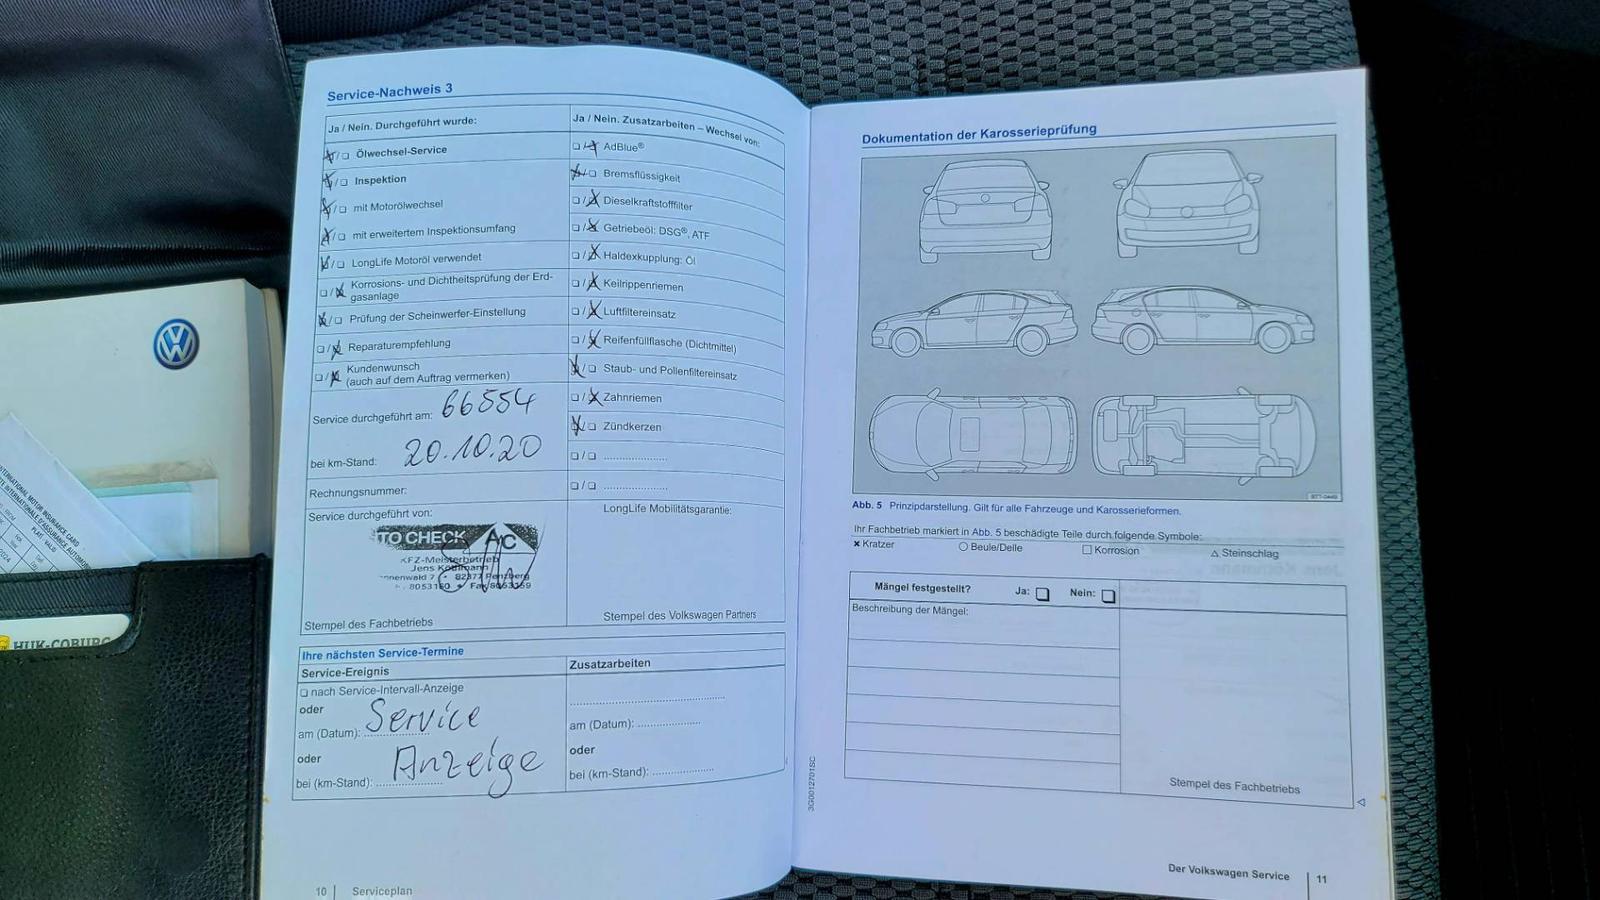 Service-Nachweis 3
Ja / Nein. Durchgeführt wurde:
☒/☐ Ölwechsel-Service
☒/☐ Inspektion
☒/☐ mit Motorölwechsel
☒/☐ mit erweitertem Inspektionsumfang
☒/☐ LongLife Motoröl verwendet
☐/☒ Korrosions- und Dichtheitsprüfung der Erd-
gasanlage
☒/☐ Prüfung der Scheinwerfer-Einstellung
☐/☒ Reparaturempfehlung
☐/☒ Kundenwunsch
(auch auf dem Auftrag vermerken)
Service durchgeführt am: 66554
bei km-Stand: 20.10.20
Rechnungsnummer:
Service durchgeführt von:
TO CHECK
KFZ-Meisterbetrieb
Jens
82377 Penzberg
Stempel des Fachbetriebs
Ja / Nein. Zusatzarbeiten – Wechsel von:
☐/☒ AdBlue®
☒/☐ Bremsflüssigkeit
☐/☒ Dieselkraftstofffilter
☐/☒ Getriebeöl: DSG®, ATF
☐/☒ Haldexkupplung: Öl
☐/☒ Keilrippenriemen
☐/☒ Luftfiltereinsatz
☐/☒ Reifenfüllflasche (Dichtmittel)
☒/☐ Staub- und Pollenfiltereinsatz
☐/☒ Zahnriemen
☒/☐ Zündkerzen
☐/☐ ....................
☐/☐ ....................
LongLife Mobilitätsgarantie:
Stempel des Volkswagen Partners
Ihre nächsten Service-Termine
Service-Ereignis
☐ nach Service-Intervall-Anzeige
oder
am (Datum): Service
oder
bei (km-Stand): Anzeige
Zusatzarbeiten
am (Datum): ....................
oder
bei (km-Stand): ....................
10 | Serviceplan
Dokumentation der Karosserieprüfung
Abb. 5 Prinzipdarstellung. Gilt für alle Fahrzeuge und Karosserieformen.
Ihr Fachbetrieb markiert in Abb. 5 beschädigte Teile durch folgende Symbole:
× Kratzer ○ Beule/Delle □ Korrosion △ Steinschlag
Mängel festgestellt? Ja: ☐ Nein: ☐
Beschreibung der Mängel:
Stempel des Fachbetriebs
3G0012701SC
Der Volkswagen Service | 11
INTERNATIONAL MOTOR INSURANCE CARD
HUK-COBURG